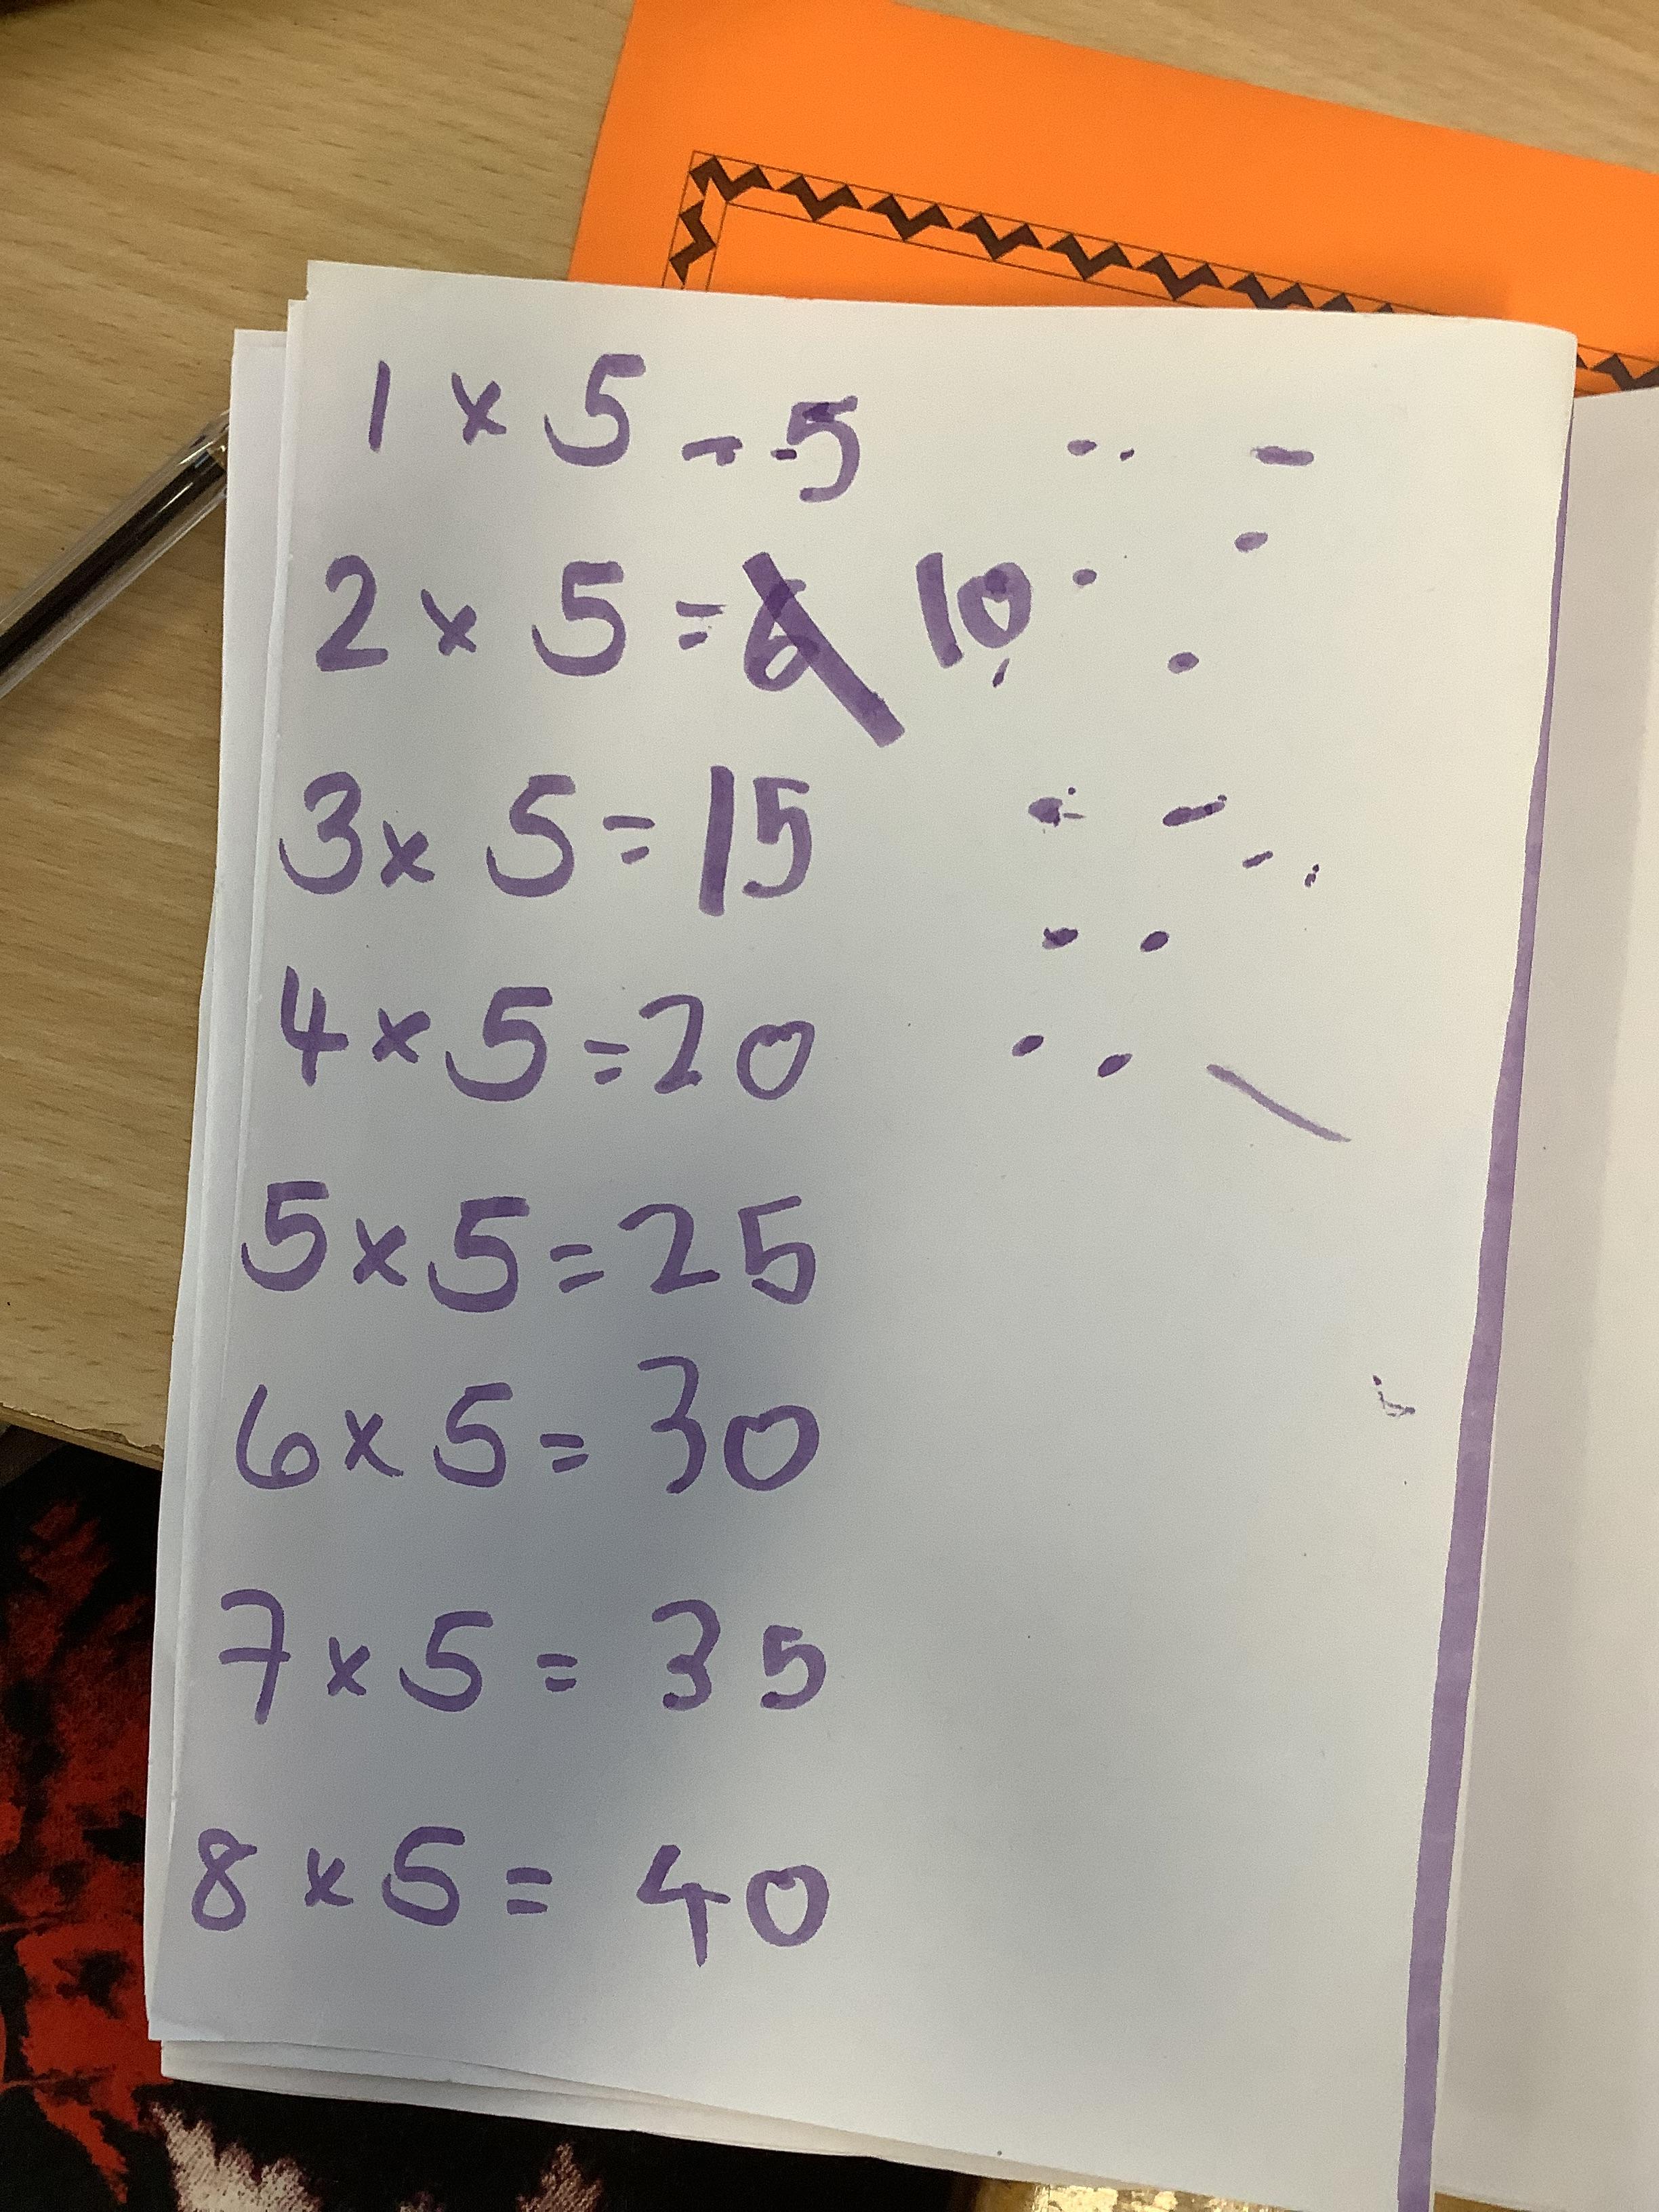 1 x 5 = 5
2 x 5 = 6 10
3 x 5 = 15
4 x 5 = 20
5 x 5 = 25
6 x 5 = 30
7 x 5 = 35
8 x 5 = 40